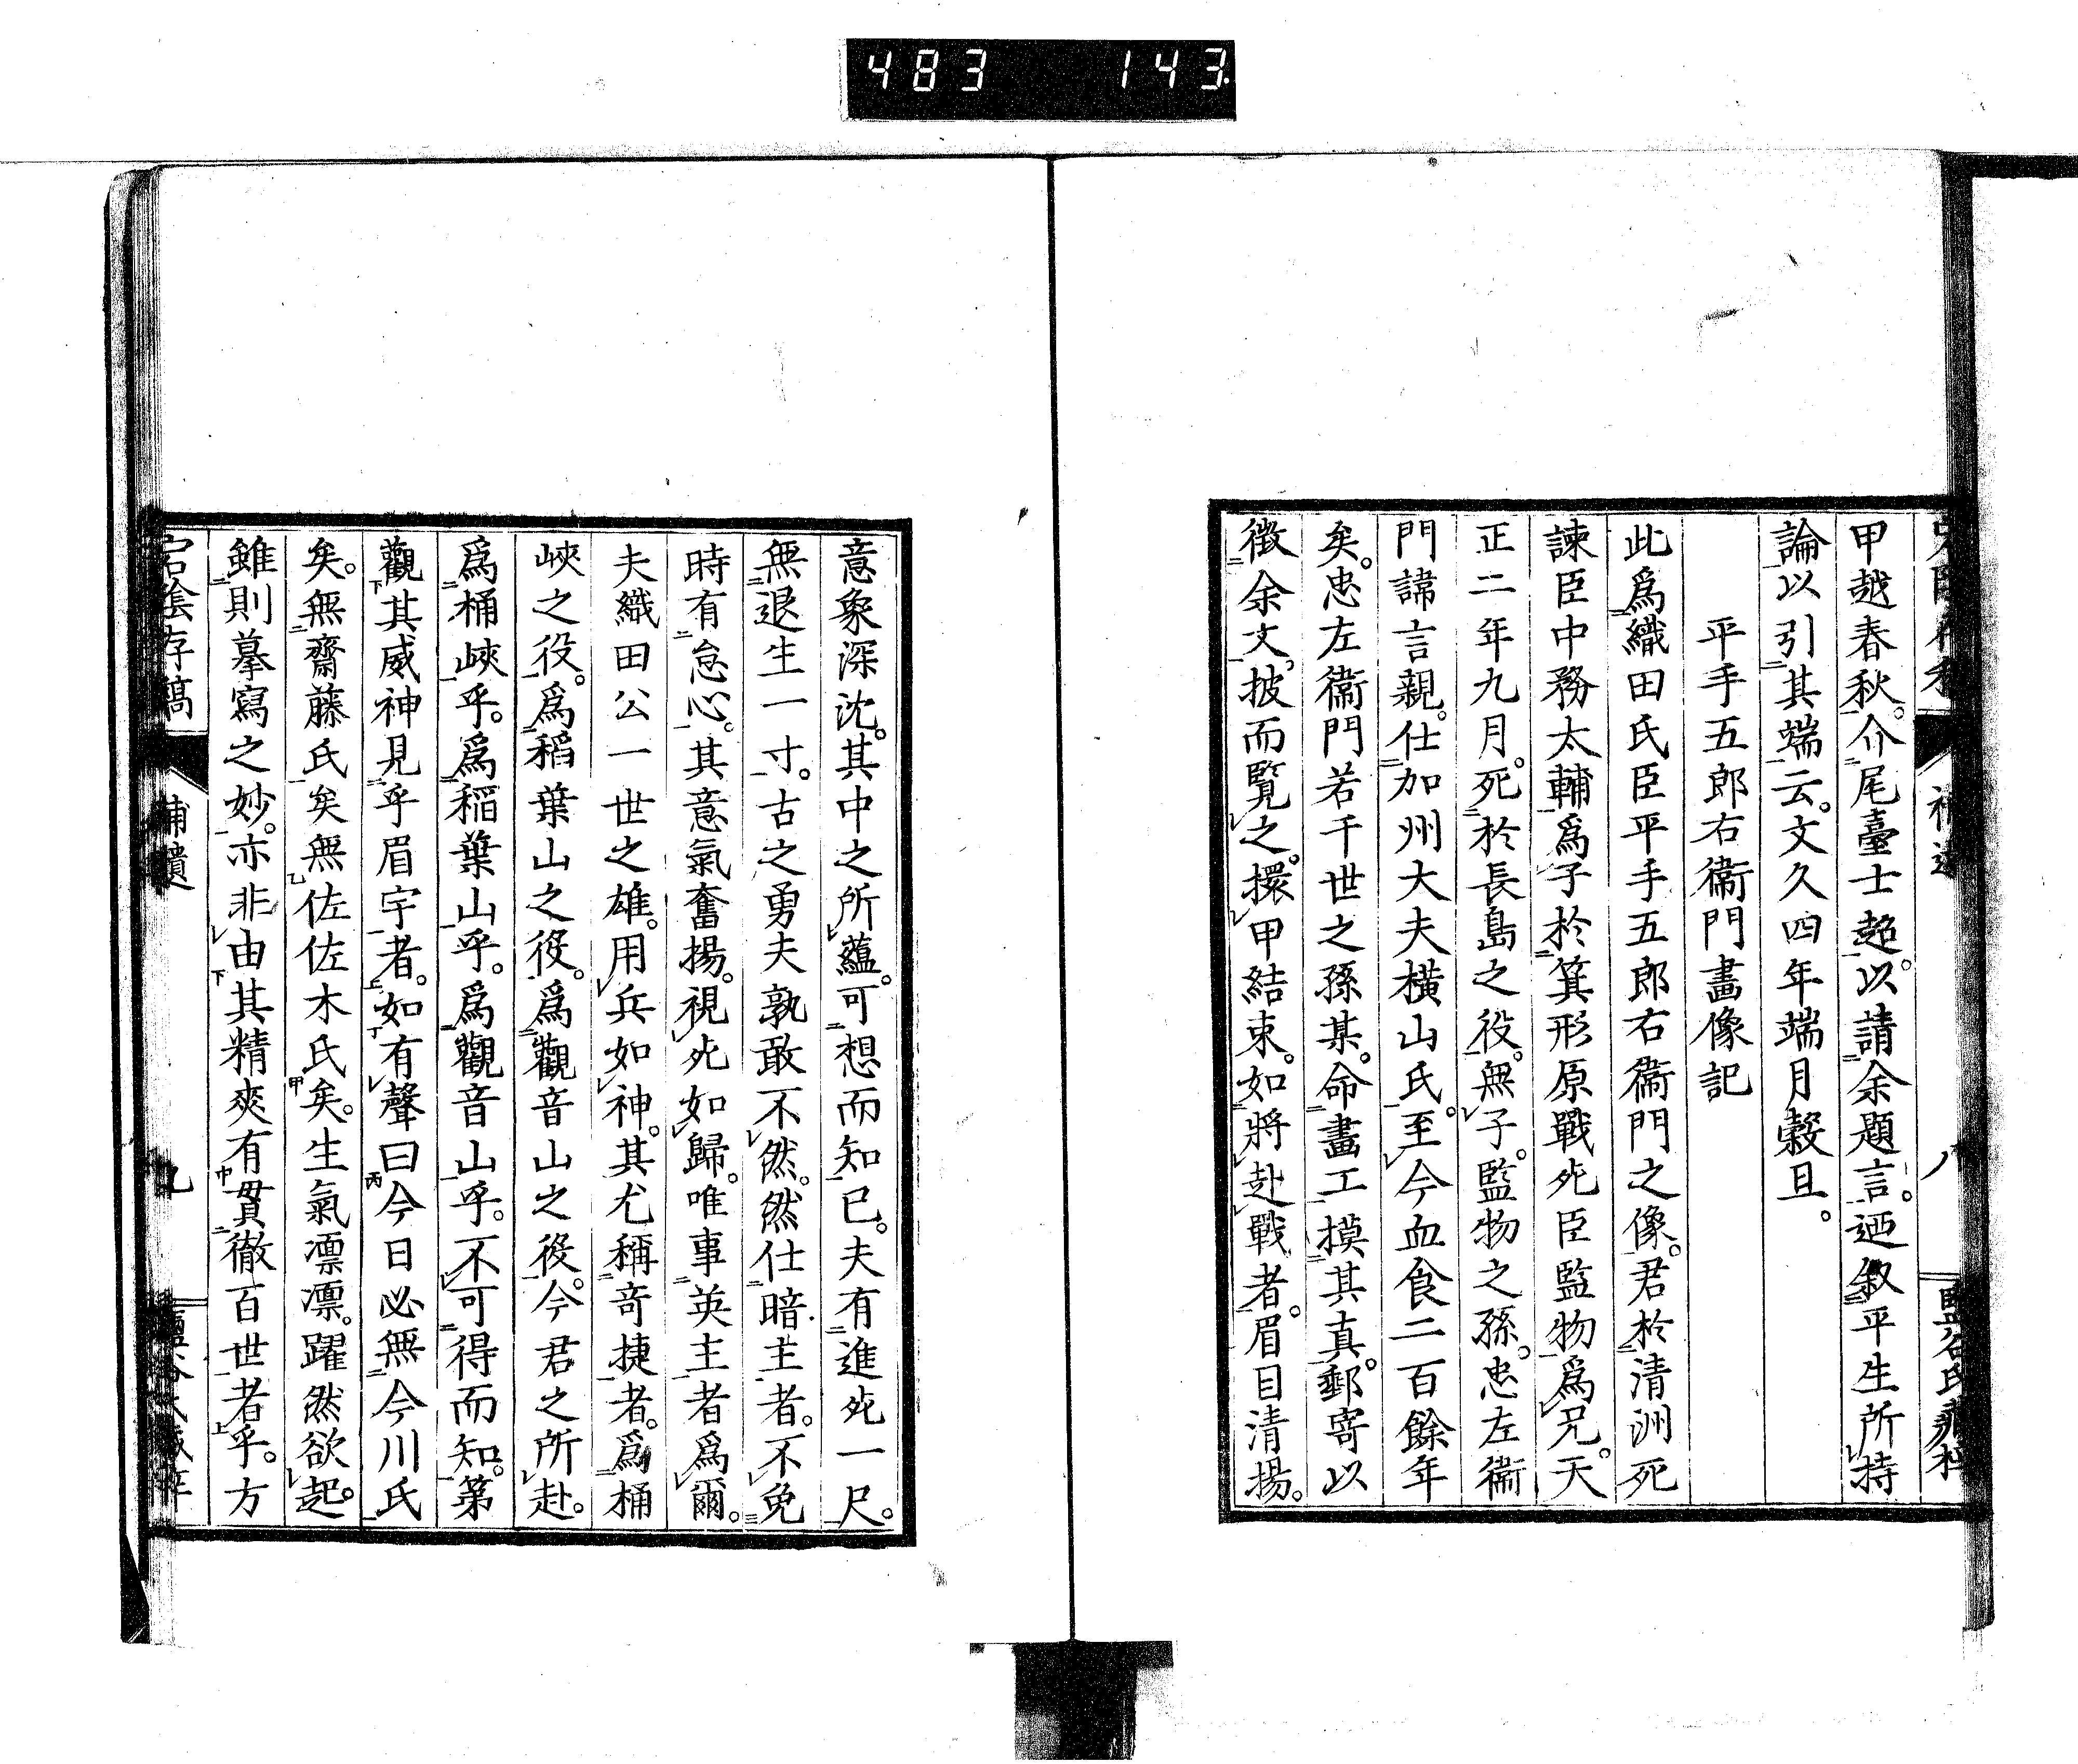 483 143
甲越春秋。介尾臺士超。以請余題言。迺叙平生所持
論以引其端云。文久四年端月穀旦。
平手五郎右衞門畫像記
此爲織田氏臣平手五郎右衞門之像。君於清洲死
諫臣中務太輔爲子於箕形原戰死臣監物爲兄。天
正二年九月。死於長島之役。無子。監物之孫。忠左衞
門諱言親。仕加州大夫橫山氏。至今血食二百餘年
矣。忠左衞門若干世之孫某。命畫工摸其真。郵寄以
徵余文。披而覽之。擐甲結束。如將赴戰者。眉目清揚。
意象深沈。其中之所蘊。可想而知已。夫有進死一尺。
無退生一寸。古之勇夫孰敢不然。然仕暗主者。不免
時有怠心。其意氣奮揚。視死如歸。唯事英主者爲爾。
夫織田公一世之雄。用兵如神。其尤稱奇捷者。爲桶
峽之役。爲稻葉山之役。爲觀音山之役。今君之所赴。
爲桶峽乎。爲稻葉山乎。爲觀音山乎。不可得而知。第
觀其威神見乎眉宇者。如有聲曰今日必無今川氏
矣。無齋藤氏矣無佐佐木氏矣。生氣凛凛。躍然欲起。
雖則摹寫之妙。亦非由其精爽有貫徹百世者乎。方
宕陰存稿 補遺 九